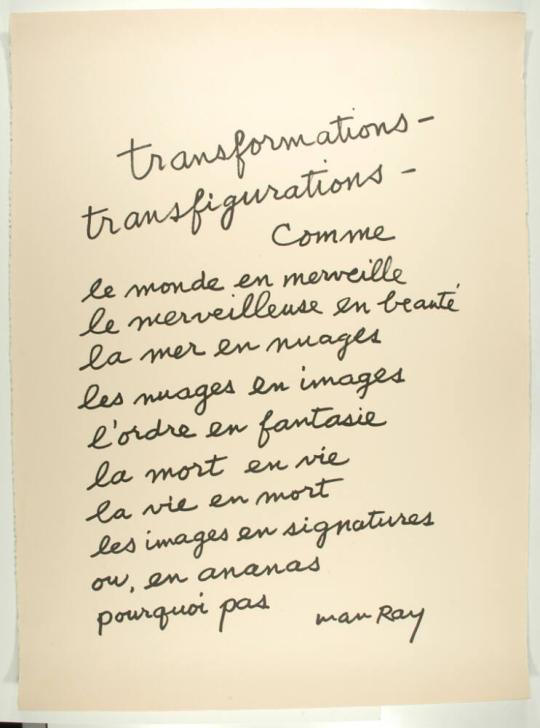 transformations-
transfigurations-
Comme
le monde en merveille
le merveilleuse en beauté
la mer en nuages
les nuages en images
l'ordre en fantasie
la mort en vie
la vie en mort
les images en signatures
ou, en ananas
pourquoi pas
man Ray